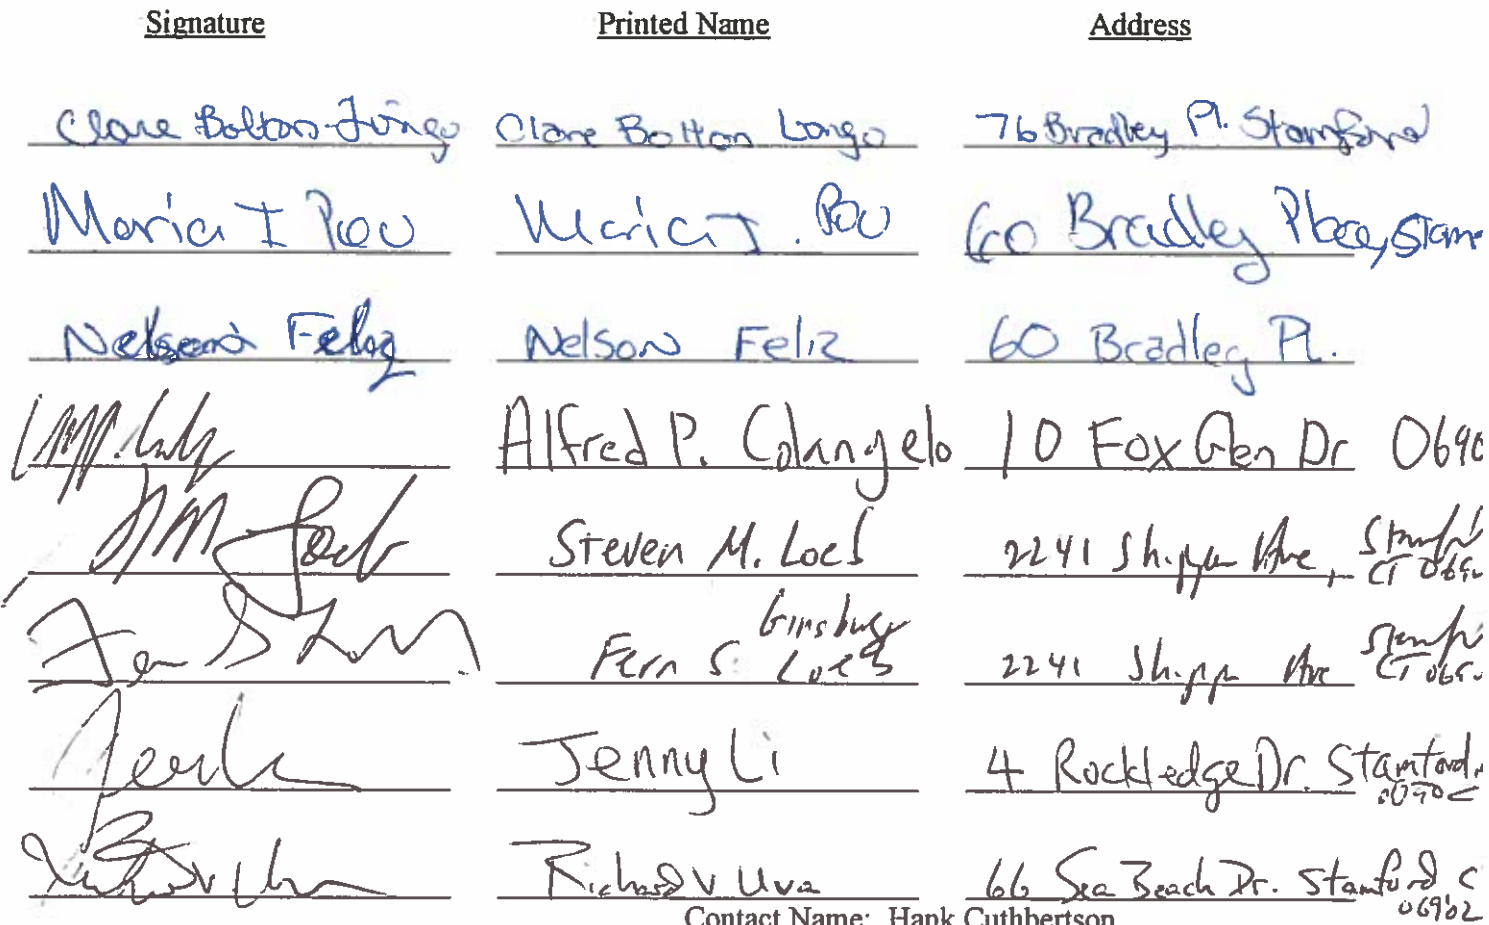 Signature Printed Name Address
Clare Bolton-Longo Clare Bolton Longo 76 Bradley Pl. Stamford
Maria I Pou Maria I. Pou 60 Bradley Place, Stam
Nelson Feliz Nelson Feliz 60 Bradley Pl.
Alfred P. Colangelo 10 Fox Glen Dr 0690
Steven M. Loeb 2241 Shippan Ave, Stamf
CT 069
Ginsburg
Fern S. Loeb 2241 Shippan Ave Stamf
CT 069
Jenny Li 4 Rockledge Dr. Stamford,
06902
Richard V Uva 66 Sea Beach Dr. Stamford C
06902
Contact Name: Hank Cuthbertson